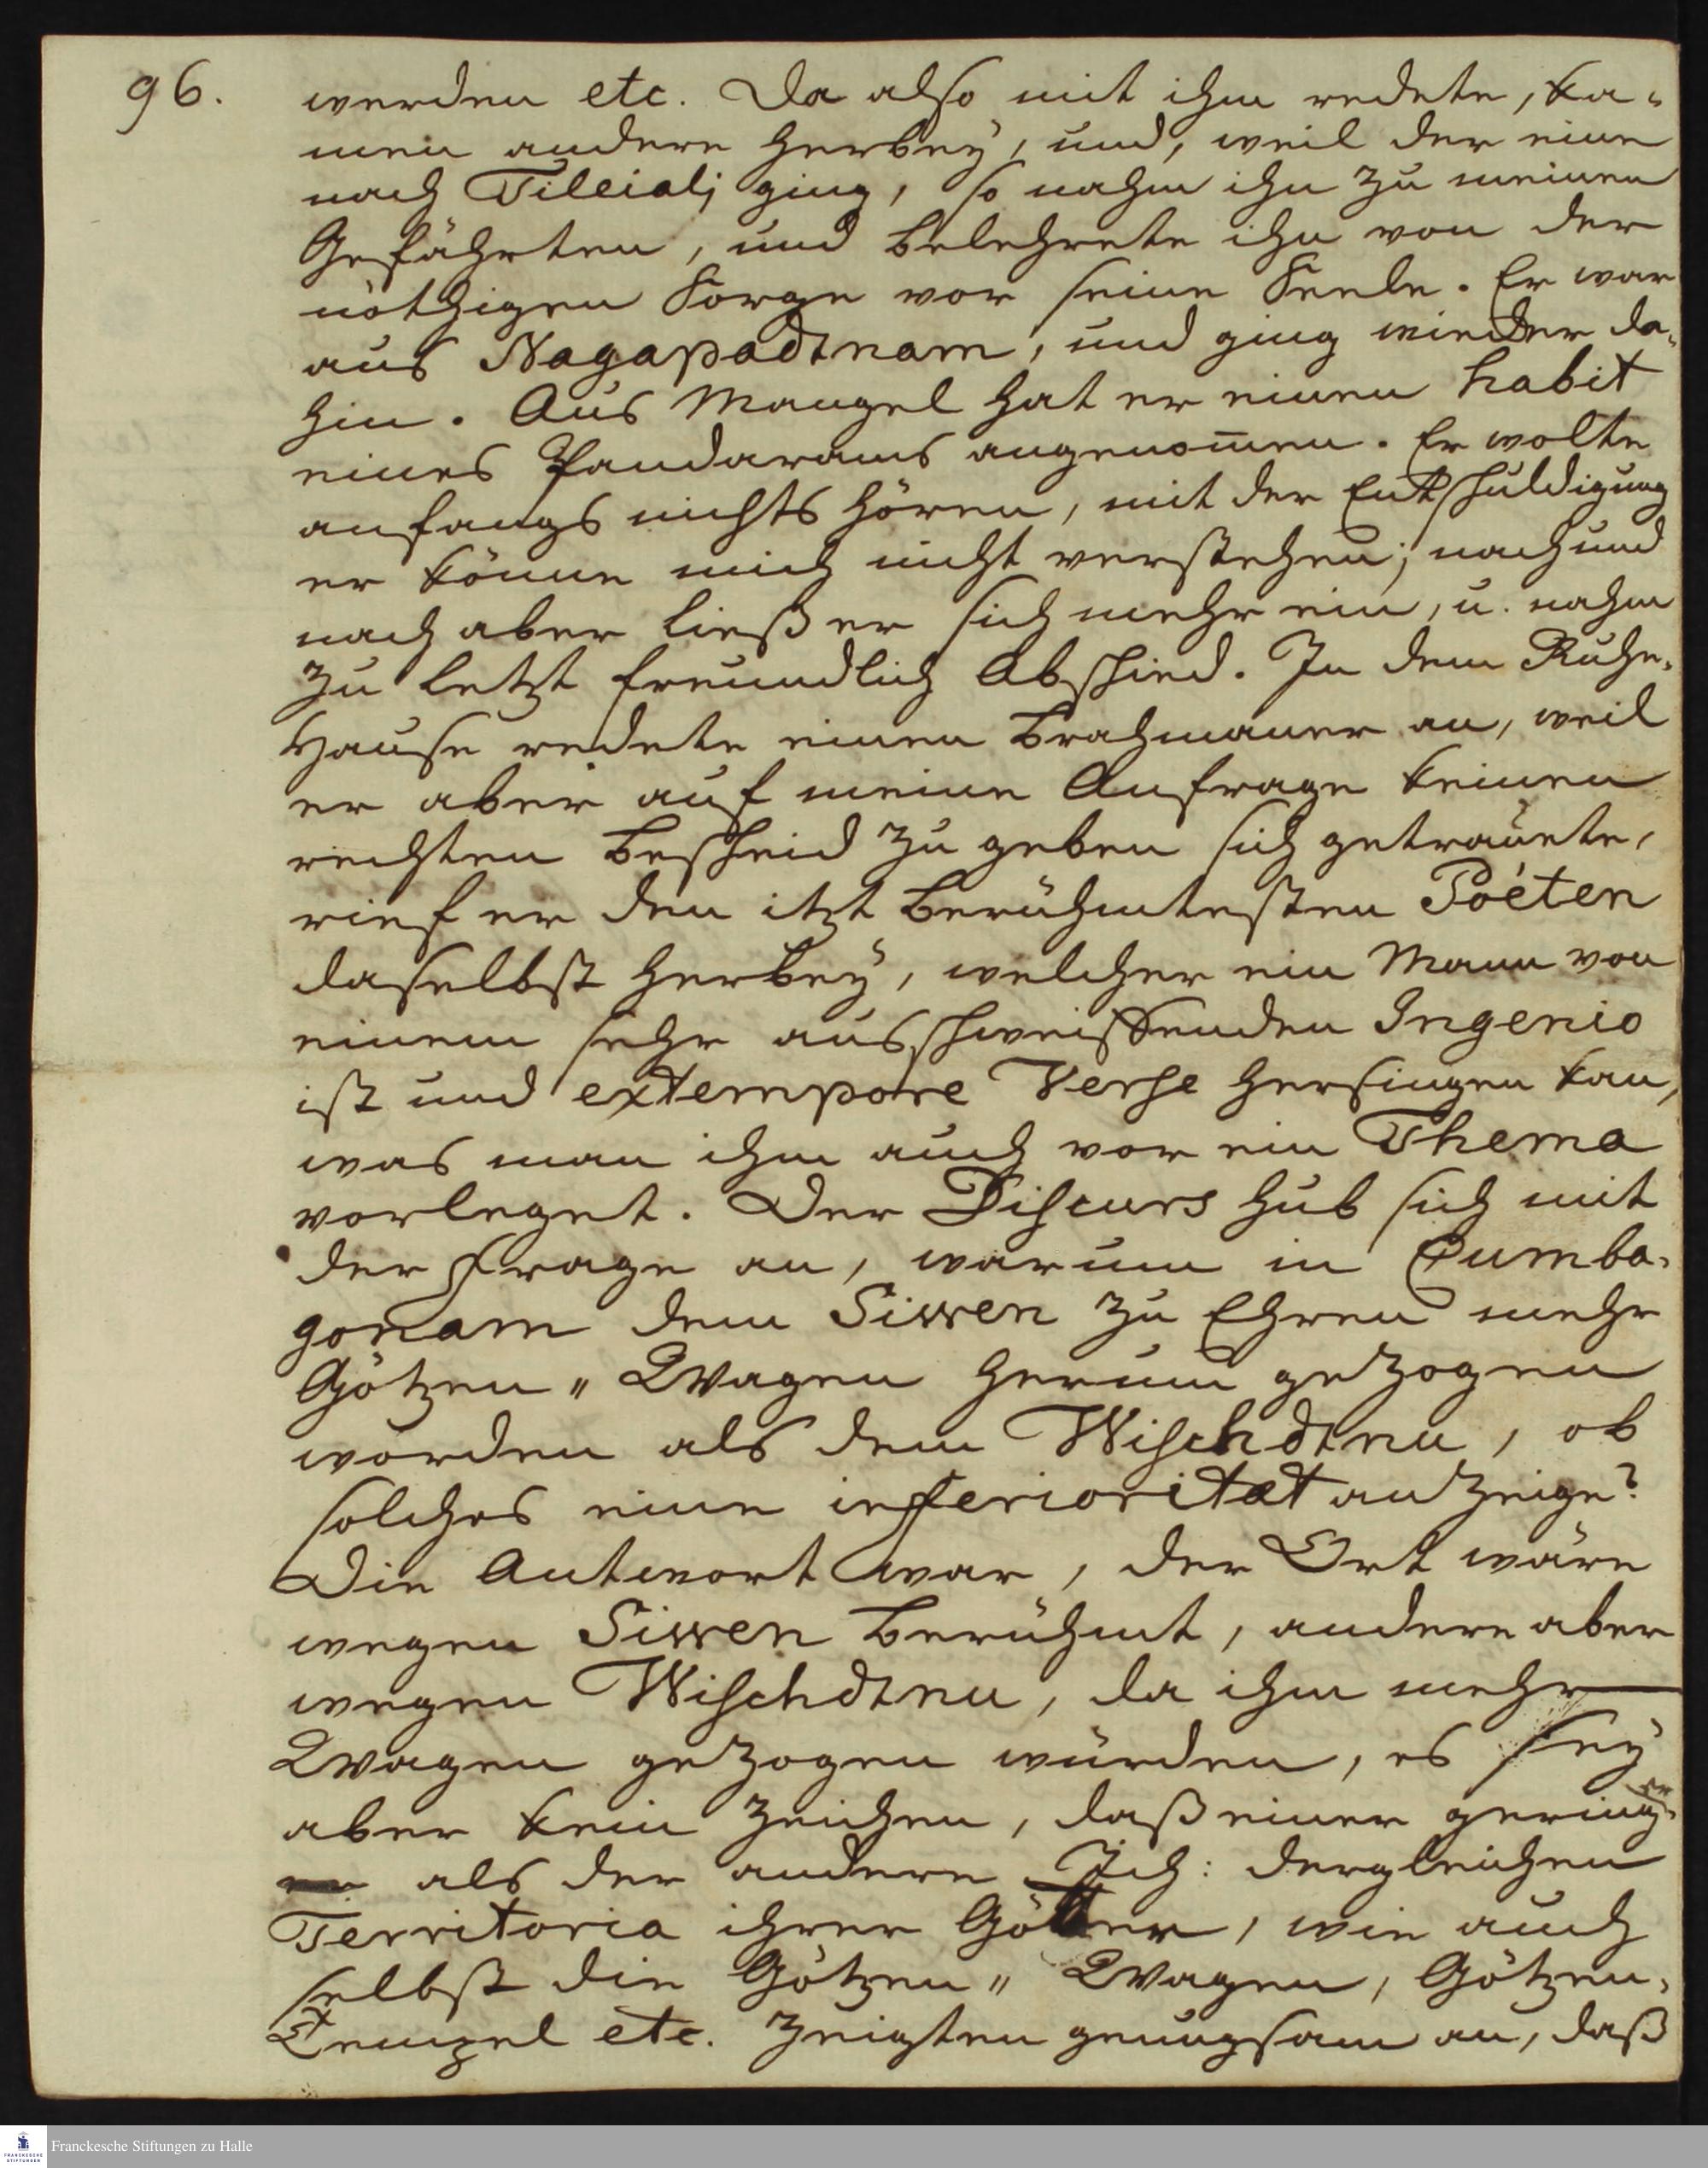 96.
werden etc. Da also mit ihm redete, ka-
men andere herbey, und, weil der eine
nach Tilleiali ging, so nahm ihn zu meinen
Gefährten, und belehrete ihn von der
nöthigen Sorge vor seine Seele. Er war
aus Nagapadtnam, und ging wieder da-
hin. Aus Mangel hat er einen habit
eines Pandarams angenom̄en. Er wolte
anfangs nichts hören, mit der Entschuldigung
er könne mich nicht verstehen; nach und
nach aber ließ er sich mehr ein, u. nahm
zu letzt freundlich Abschied. In dem Ruhe-
Hause redete einen Brahmaner an, weil
er aber auf meine Anfrage keinen
rechten Bescheid zu geben sich getrauete,
rief er den itzt berühmtesten Poëten
daselbst herbey, welcher ein Mann von
einem sehr ausschweiffenden Ingenio
ist und extempore Verse hersingen kan,
was man ihm auch vor ein Thema
vorleget. Der Discurs hub sich mit
der Frage an, warum in Cumba-
gonam dem Siwen zu Ehren mehr
Götzen-Wagen herum gezogen
worden als dem Wischdtnu, ob
solches eine inferioritæt anzeige?
Die Antwort war, der Ort wäre
wegen Siwen berühmt, andere aber
wegen Wischdtnu, da ihm mehr
Wagen gezogen würden, es sey
aber kein Zeichen, daß einer gering-er
als der andere. Ich: dergleichen
Territoria ihrer Götter, wie auch
selbst die Götzen-Wagen, Götzen-
Tempel etc. zeigten genugsam an, daß
Franckesche Stiftungen zu Halle